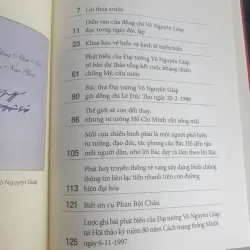 7 Lời thưa trước
Diễn văn của đồng chí Võ Nguyên Giáp
11 đọc trong ngày độc lập
23 Khoa học về biển và kinh tế miền biển
Phát biểu của Đại tướng Võ Nguyên Giáp
về bản dự thảo tổng kết cuộc kháng chiến
61 chống Mỹ, cứu nước
Bức thư Đại tướng Võ Nguyên Giáp
80 gửi đồng chí Lê Đức Thọ ngày 20-2-1986
Thế giới sẽ còn đổi thay,
91 nhưng tư tưởng Hồ Chí Minh vẫn sống mãi
Mỗi cựu chiến binh phải là một người phổ biến
tư tưởng, đạo đức, tác phong của Bác Hồ đến tận
105 mỗi người dân, nhớ lời Bác dạy và làm theo Bác
Phát huy truyền thống vẻ vang xây dựng binh chủng
thông tin liên lạc tiến nhanh trên con đường
113 hiện đại hóa
121 Biết ơn cụ Phan Bội Châu
Lược ghi bài phát biểu của Đại tướng Võ Nguyên Giáp
tại Hội thảo kỷ niệm 80 năm Cách mạng tháng Mười
125 ngày 6-11-1997
Nguyên Giáp